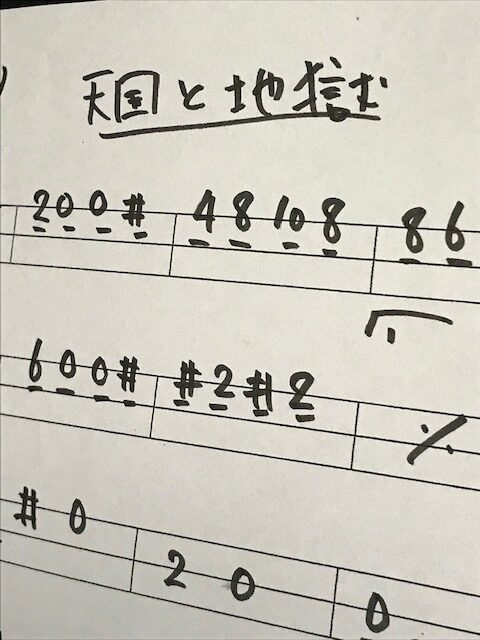 天国と地獄
200# 48108 86
600# #2#2 ٪
#0 20 0